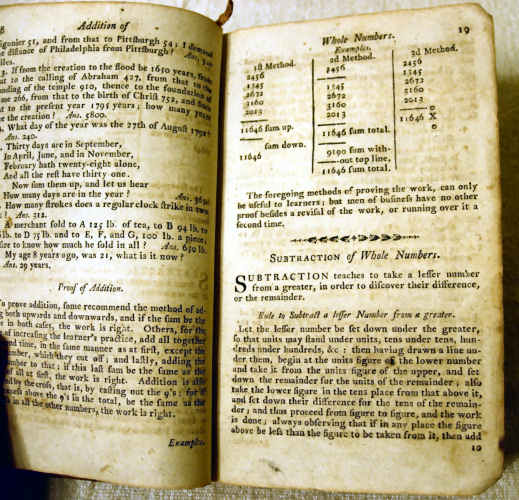 8
Addition of
igonier 51, and from that to Pittsburgh 54: I demand
the distance of Philadelphia from Pittsburgh? Ans. 320
iles.
3. If from the creation to the flood be 1656 years, from
to the calling of Abraham 427, from that to the
nding of the temple 910, thence to the foundation of
266, from that to the birth of Christ 752, and from
at to the present year 1795 years; how many years
the creation? Ans. 5800.
What day of the year was the 27th of August 1792?
Ans. 240.
Thirty days are in September,
In April, June, and in November,
February hath twenty-eight alone,
And all the rest have thirty one.
Now sum them up, and let us hear
How many days are in the year?
How many strokes does a regular clock strike in
? Ans. 312.
A merchant sold to A 125 lb. of tea, to D 94 lb. to
lb. to D 75 lb. and to E, F, and G, 100 lb. a piece;
sire to know how much he sold in all? Ans. 650 lb.
My age 8 years ago, was 21, what is it now?
Ans. 29 years.
Proof of Addition.
To prove addition, some recommend the method of ad-
ing both upwards and downwards, and if the sum be the
in both cases, the work is right. Others, for the
of increasing the learner's practice, add all together
time, in the same manner as at first, except the
number, which they cut off; and lastly, adding the
number to that; if this last sum be the same as the
at first, the work is right. Addition is also
by the cross, that is, by casting out the 9's: for if
excess above the 9's in the total, be the same as the
in all the other numbers, the work is right.
Examples.
Whole Numbers.
19
Examples.
1st Method.
2d Method.
3d Method.
2456
2456
2456
1345
1345
1345
2672
2672
2672
3160
3160
3160
2013
2013
2013
o
11646 sum up.
11646 sum total.
11646 X
o
sum down.
9190 sum with-
11646
out top line,
11646 sum total.
The foregoing methods of proving the work, can only
be useful to learners; but men of business have no other
proof besides a revisal of the work, or running over it a
second time.
SUBTRACTION of Whole Numbers.
SUBTRACTION teaches to take a lesser number
from a greater, in order to discover their difference,
or the remainder.
Rule to Subtract a lesser Number from a greater.
Let the lesser number be set down under the greater,
so that units may stand under units, tens under tens, hun-
dreds under hundreds, &c: then having drawn a line un-
der them, begin at the units figure of the lower number
and take it from the units figure of the upper, and set
down the remainder for the units of the remainder; also
take the lower figure in the tens place from that above it,
and set down their difference for the tens of the remain-
der; and thus proceed from figure to figure, and the work
is done; always observing that if in any place the figure
above be less than the figure to be taken from it, then add
10